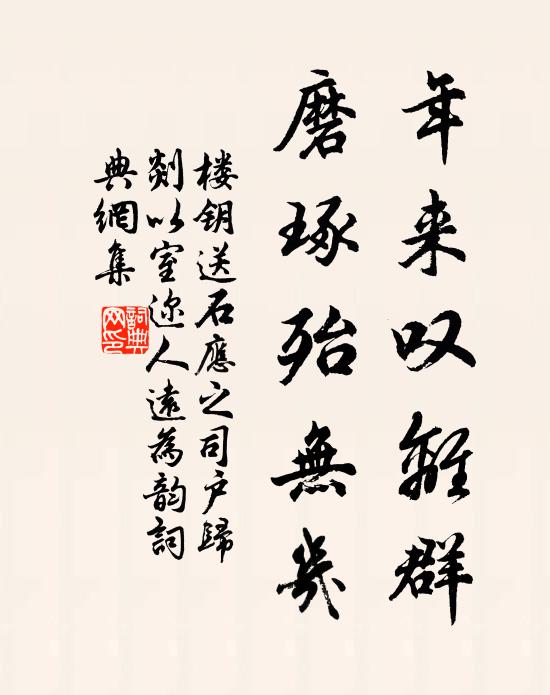 年来叹離群
磨琢殆無幾
楼钥送石應之司户歸
剡以室迩人遠為韵詞
典網集
詞典
网印